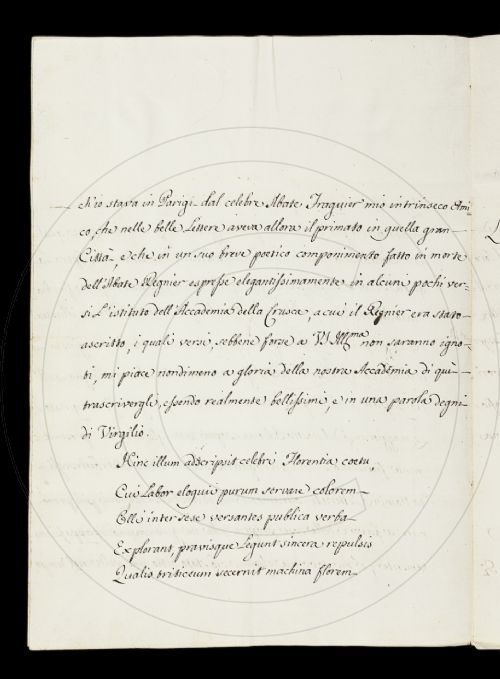 ch'io stava in Parigi dal celebre Abate Fraguier mio intrinseco Ami-
co, che nelle belle Lettere aveva allora il primato in quella gran
Città, e che in un suo breve poetico componimento fatto in morte
dell'Abate Regnier espresse elegantissimamente in alcuni pochi ver-
si L'istituto dell'Accademia della Crusca, a cui il Regnier era stato
ascritto, i quali versi, sebbene forse a VS Illma non saranno igno-
ti, mi piace nondimeno a gloria della nostra Accademia di quì
trascrivergli, essendo realmente bellissimi, e in una parola degni
di Virgilio.
Hinc illum adscripsit celebri Florentia coetu,
Cui Labor eloquii purum servare colorem
Illi inter sese versantes publica verba
Explorant, pravisque Legunt sincera repulsis
Qualis triticeum secernit machina florem